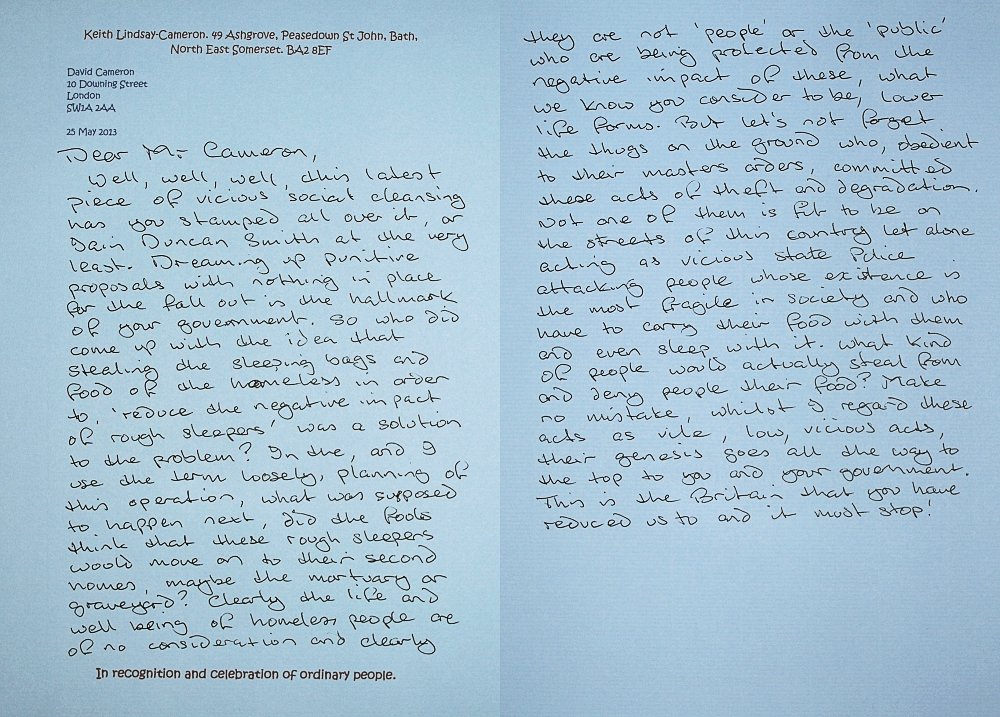 Keith Lindsay-Cameron. 49 Ashgrove, Peasedown St John, Bath,
North East Somerset. BA2 8EF
David Cameron
10 Downing Street
London
SW1A 2AA
25 May 2013
Dear Mr Cameron,
Well, well, well, this latest
piece of vicious social cleansing
has you stamped all over it, or
Iain Duncan Smith at the very
least. Dreaming up punitive
proposals with nothing in place
for the fall out is the hallmark
of your government. So who did
come up with the idea that
stealing the sleeping bags and
food of the homeless in order
to, 'reduce the negative impact
of rough sleepers' was a solution
to the problem? In the, and I
use the term loosely, planning of
this operation, what was supposed
to happen next, did the fools
think that these rough sleepers
would move on to their second
homes, maybe the mortuary or
graveyard? Clearly the life and
well being of homeless people are
of no consideration and clearly
In recognition and celebration of ordinary people.
they are not 'people' or the 'public'
who are being protected from the
negative impact of these, what
we know you consider to be, lower
life forms. But let's not forget
the thugs on the ground who, obedient
to their masters orders, committed
these acts of theft and degradation.
Not one of them is fit to be on
the streets of this country let alone
acting as vicious state Police
attacking people whose existence is
the most fragile in society and who
have to carry their food with them
and even sleep with it. What kind
of people would actually steal from
and deny people their food? Make
no mistake, whilst I regard these
acts as vile, low, vicious acts,
their genesis goes all the way to
the top to you and your government.
This is the Britain that you have
reduced us to and it must stop!